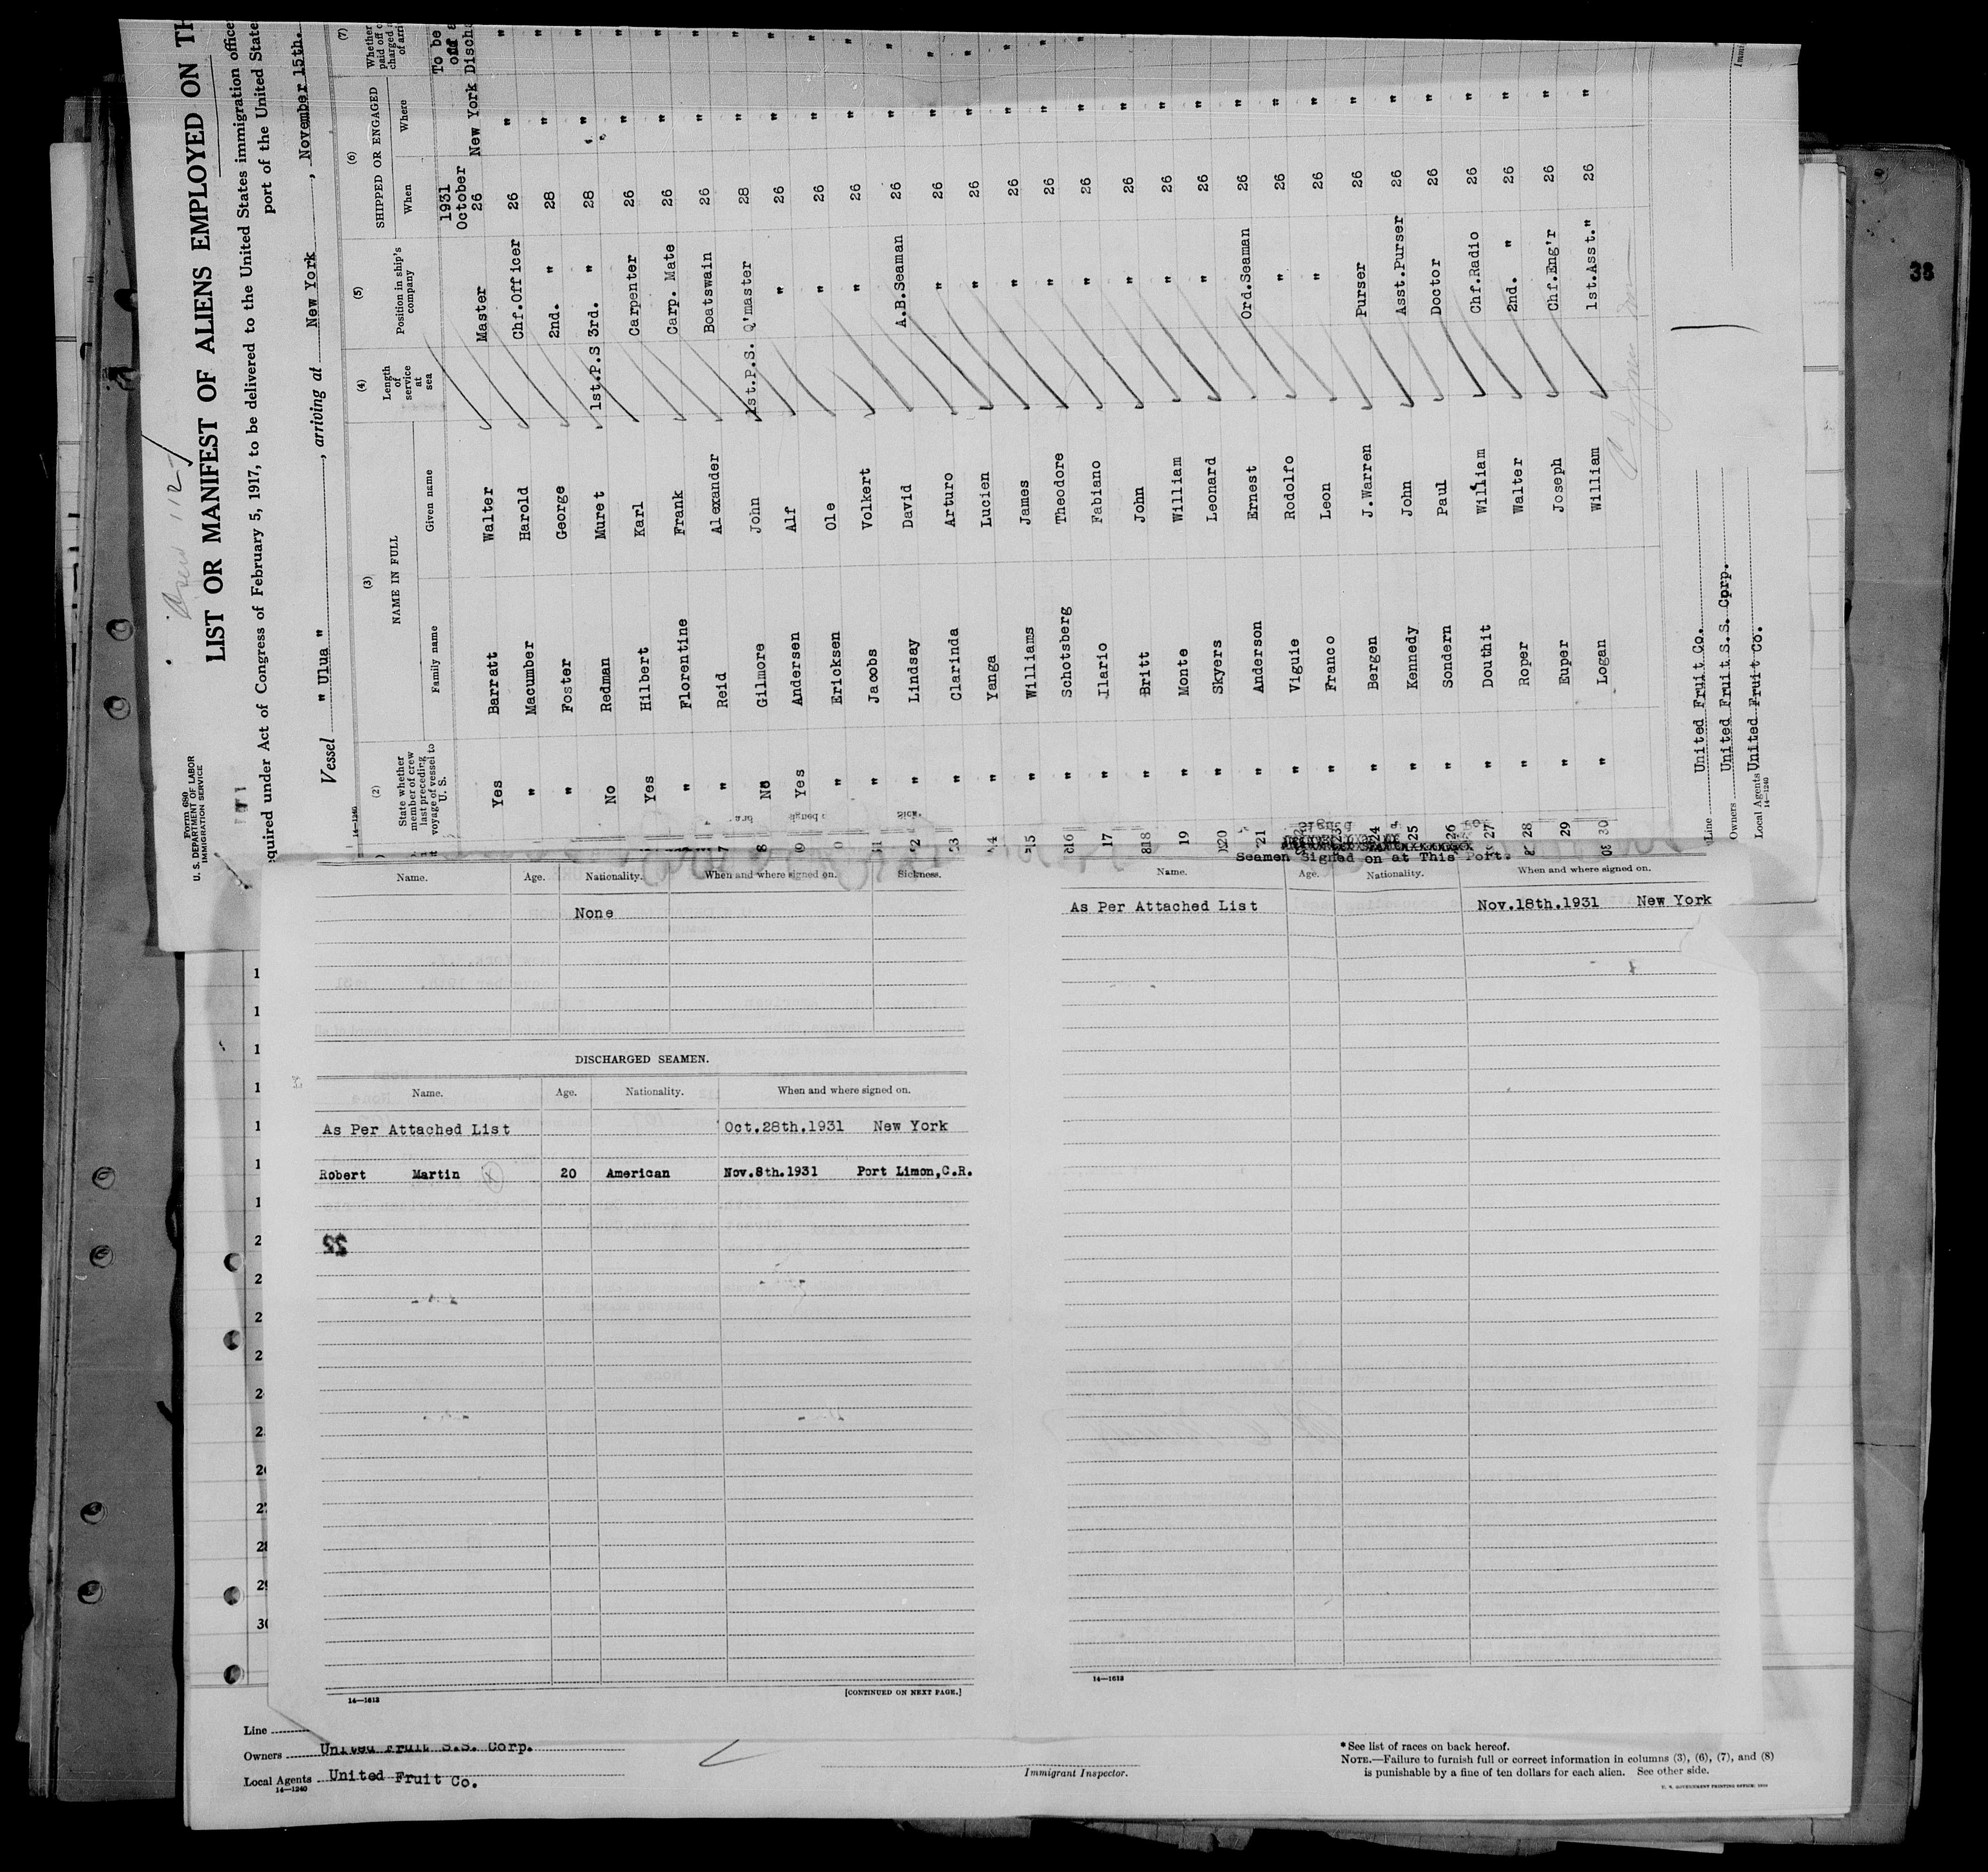 Form 680
U. S. DEPARTMENT OF LABOR
IMMIGRATION SERVICE
LIST OR MANIFEST OF ALIENS EMPLOYED ON TH
equired under Act of Congress of February 5, 1917, to be delivered to the United States immigration office
port of the United State
Vessel "Ulua", arriving at New York, November 15th.
14—1240
(2) (3) (4) (5) (6) (7)
State whether member of crew last preceding voyage of vessel to U. S.
NAME IN FULL
Family name Given name
Length of service at sea
Position in ship's company
SHIPPED OR ENGAGED
When Where
1931
October To be
Yes Barratt Walter Master 26 New York Disch
" Macumber Harold Chf.Officer 26 " "
" Foster George 2nd. " 28 " "
No Redman Muret 1st.P.S 3rd. " 28 " "
Yes Hilbert Karl Carpenter 26 " "
" Florentine Frank Carp. Mate 26 " "
7 " Reid Alexander Boatswain 26 " "
8 No Gilmore John 1st.P.S. Q'master 28 " "
9 Yes Andersen Alf " 26 " "
0 " Ericksen Ole " 26 " "
1 " Jacobs Volkert " 26 " "
2 " Lindsay David A.B.Seaman 26 " "
3 " Clarinda Arturo " 26 " "
4 " Yanga Lucien " 26 " "
15 " Williams James " 26 " "
16 " Schotsberg Theodore " 26 " "
17 " Ilario Fabiano " 26 " "
18 " Britt John " 26 "
19 " Monte William " 26 "
20 " Skyers Leonard " 26 "
21 " Anderson Ernest Ord.Seaman 26 "
" Viguie Rodolfo " 26 "
23 " Franco Leon " 26 "
24 " Bergen J.Warren Purser 26 "
25 " Kennedy John Asst.Purser 26 "
26 " Sondern Paul Doctor 26 "
27 " Douthit William Chf.Radio 26 "
28 " Roper Walter 2nd. " 26 "
29 " Euper Joseph Chf.Eng'r 26 "
30 " Logan William 1st.Asst." 26 "
Line United Fruit Co.
Owners United Fruit S.S. Corp.
Local Agents United Fruit Co.
14—1240
38
Name. Age. Nationality. When and where signed on. Sickness.
None
DISCHARGED SEAMEN.
Name. Age. Nationality. When and where signed on.
As Per Attached List Oct.28th.1931 New York
Robert Martin 20 American Nov.8th.1931 Port Limon,C.R.
14—1613
[CONTINUED ON NEXT PAGE.]
Seamen Signed on at This Port.
Name. Age. Nationality. When and where signed on.
As Per Attached List Nov.18th.1931 New York
14—1613
28
29
Line
Owners United Fruit S.S. Corp.
Local Agents United Fruit Co.
14—1240
Immigrant Inspector.
* See list of races on back hereof.
NOTE.—Failure to furnish full or correct information in columns (3), (6), (7), and (8)
is punishable by a fine of ten dollars for each alien. See other side.